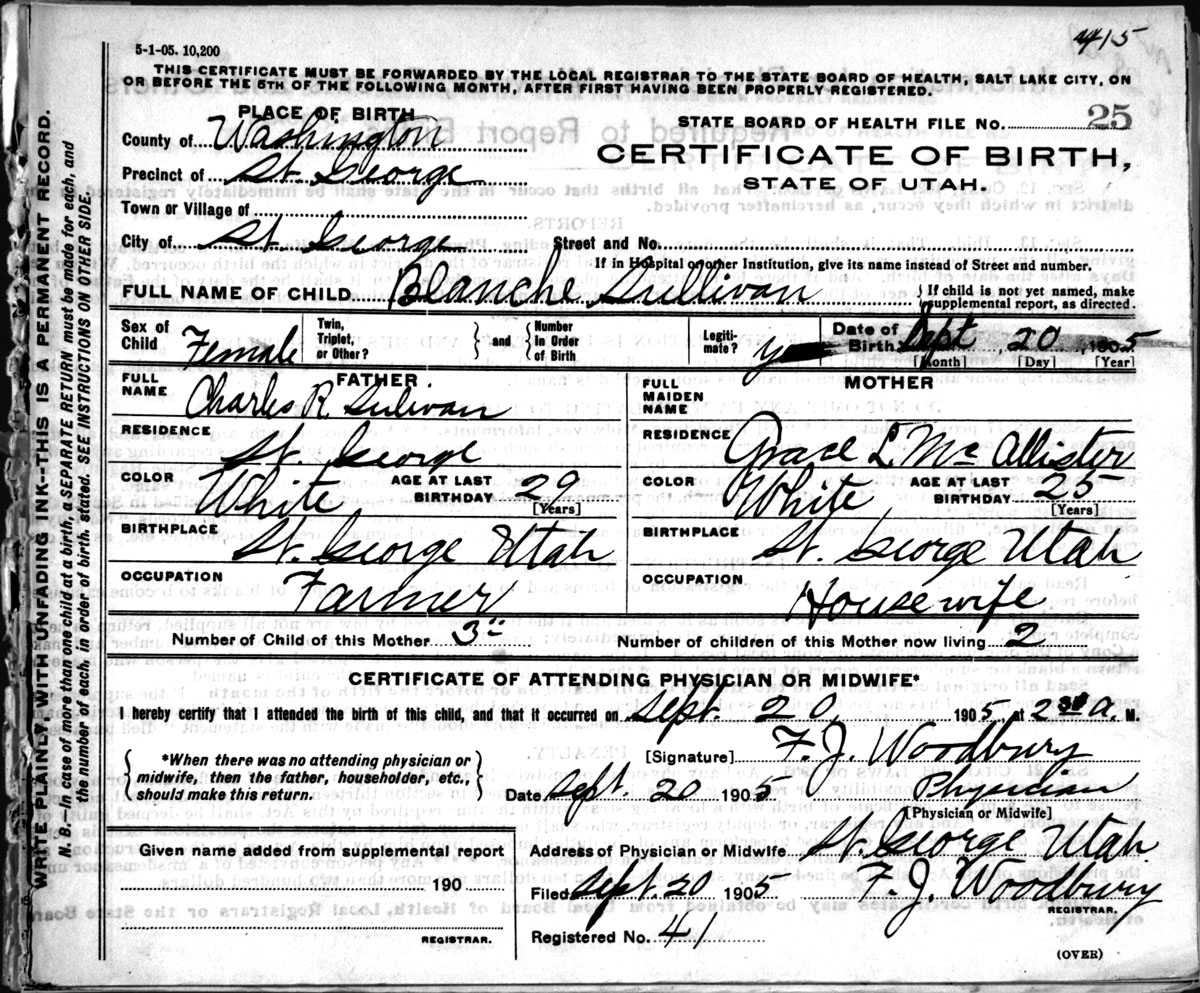 5-1-05. 10,200
415
THIS CERTIFICATE MUST BE FORWARDED BY THE LOCAL REGISTRAR TO THE STATE BOARD OF HEALTH, SALT LAKE CITY, ON
OR BEFORE THE 5TH OF THE FOLLOWING MONTH, AFTER FIRST HAVING BEEN PROPERLY REGISTERED.
PLACE OF BIRTH
STATE BOARD OF HEALTH FILE No. 25
County of Washington
CERTIFICATE OF BIRTH,
Precinct of St. George
STATE OF UTAH.
Town or Village of
City of St. George Street and No.
If in Hospital or other Institution, give its name instead of Street and number.
FULL NAME OF CHILD Blanche Sullivan
{ If child is not yet named, make
supplemental report, as directed.
Sex of Child Female Twin, Triplet, or Other? } and { Number In Order of Birth Legiti-mate? Date of Birth Sept 20, 1905
[Month] [Day] [Year]
FATHER.
FULL NAME Charles R. Sulivan
RESIDENCE St. George
COLOR White AGE AT LAST BIRTHDAY 29
[Years]
BIRTHPLACE St. George Utah
OCCUPATION Farmer
MOTHER
FULL MAIDEN NAME
RESIDENCE Grace L. Mc Allister
COLOR White AGE AT LAST BIRTHDAY 25
[Years]
BIRTHPLACE St. George Utah
OCCUPATION Housewife
Number of Child of this Mother 3" Number of children of this Mother now living 2
CERTIFICATE OF ATTENDING PHYSICIAN OR MIDWIFE*
I hereby certify that I attended the birth of this child, and that it occurred on Sept. 20 1905, at 2 30 a. M.
{ *When there was no attending physician or
midwife, then the father, householder, etc.,
should make this return. }
[Signature] F. J. Woodbury
Date Sept. 20 1905 Physician
[Physician or Midwife]
Given name added from supplemental report
190
REGISTRAR.
Address of Physician or Midwife St. George Utah.
Filed Sept. 20 1905 F. J. Woodbury
REGISTRAR.
Registered No. 41
(OVER)
WRITE PLAINLY WITH UNFADING INK--THIS IS A PERMANENT RECORD.
N. B.—In case of more than one child at a birth, a SEPARATE RETURN must be made for each, and
the number of each, in order of birth, stated. SEE INSTRUCTIONS ON OTHER SIDE.